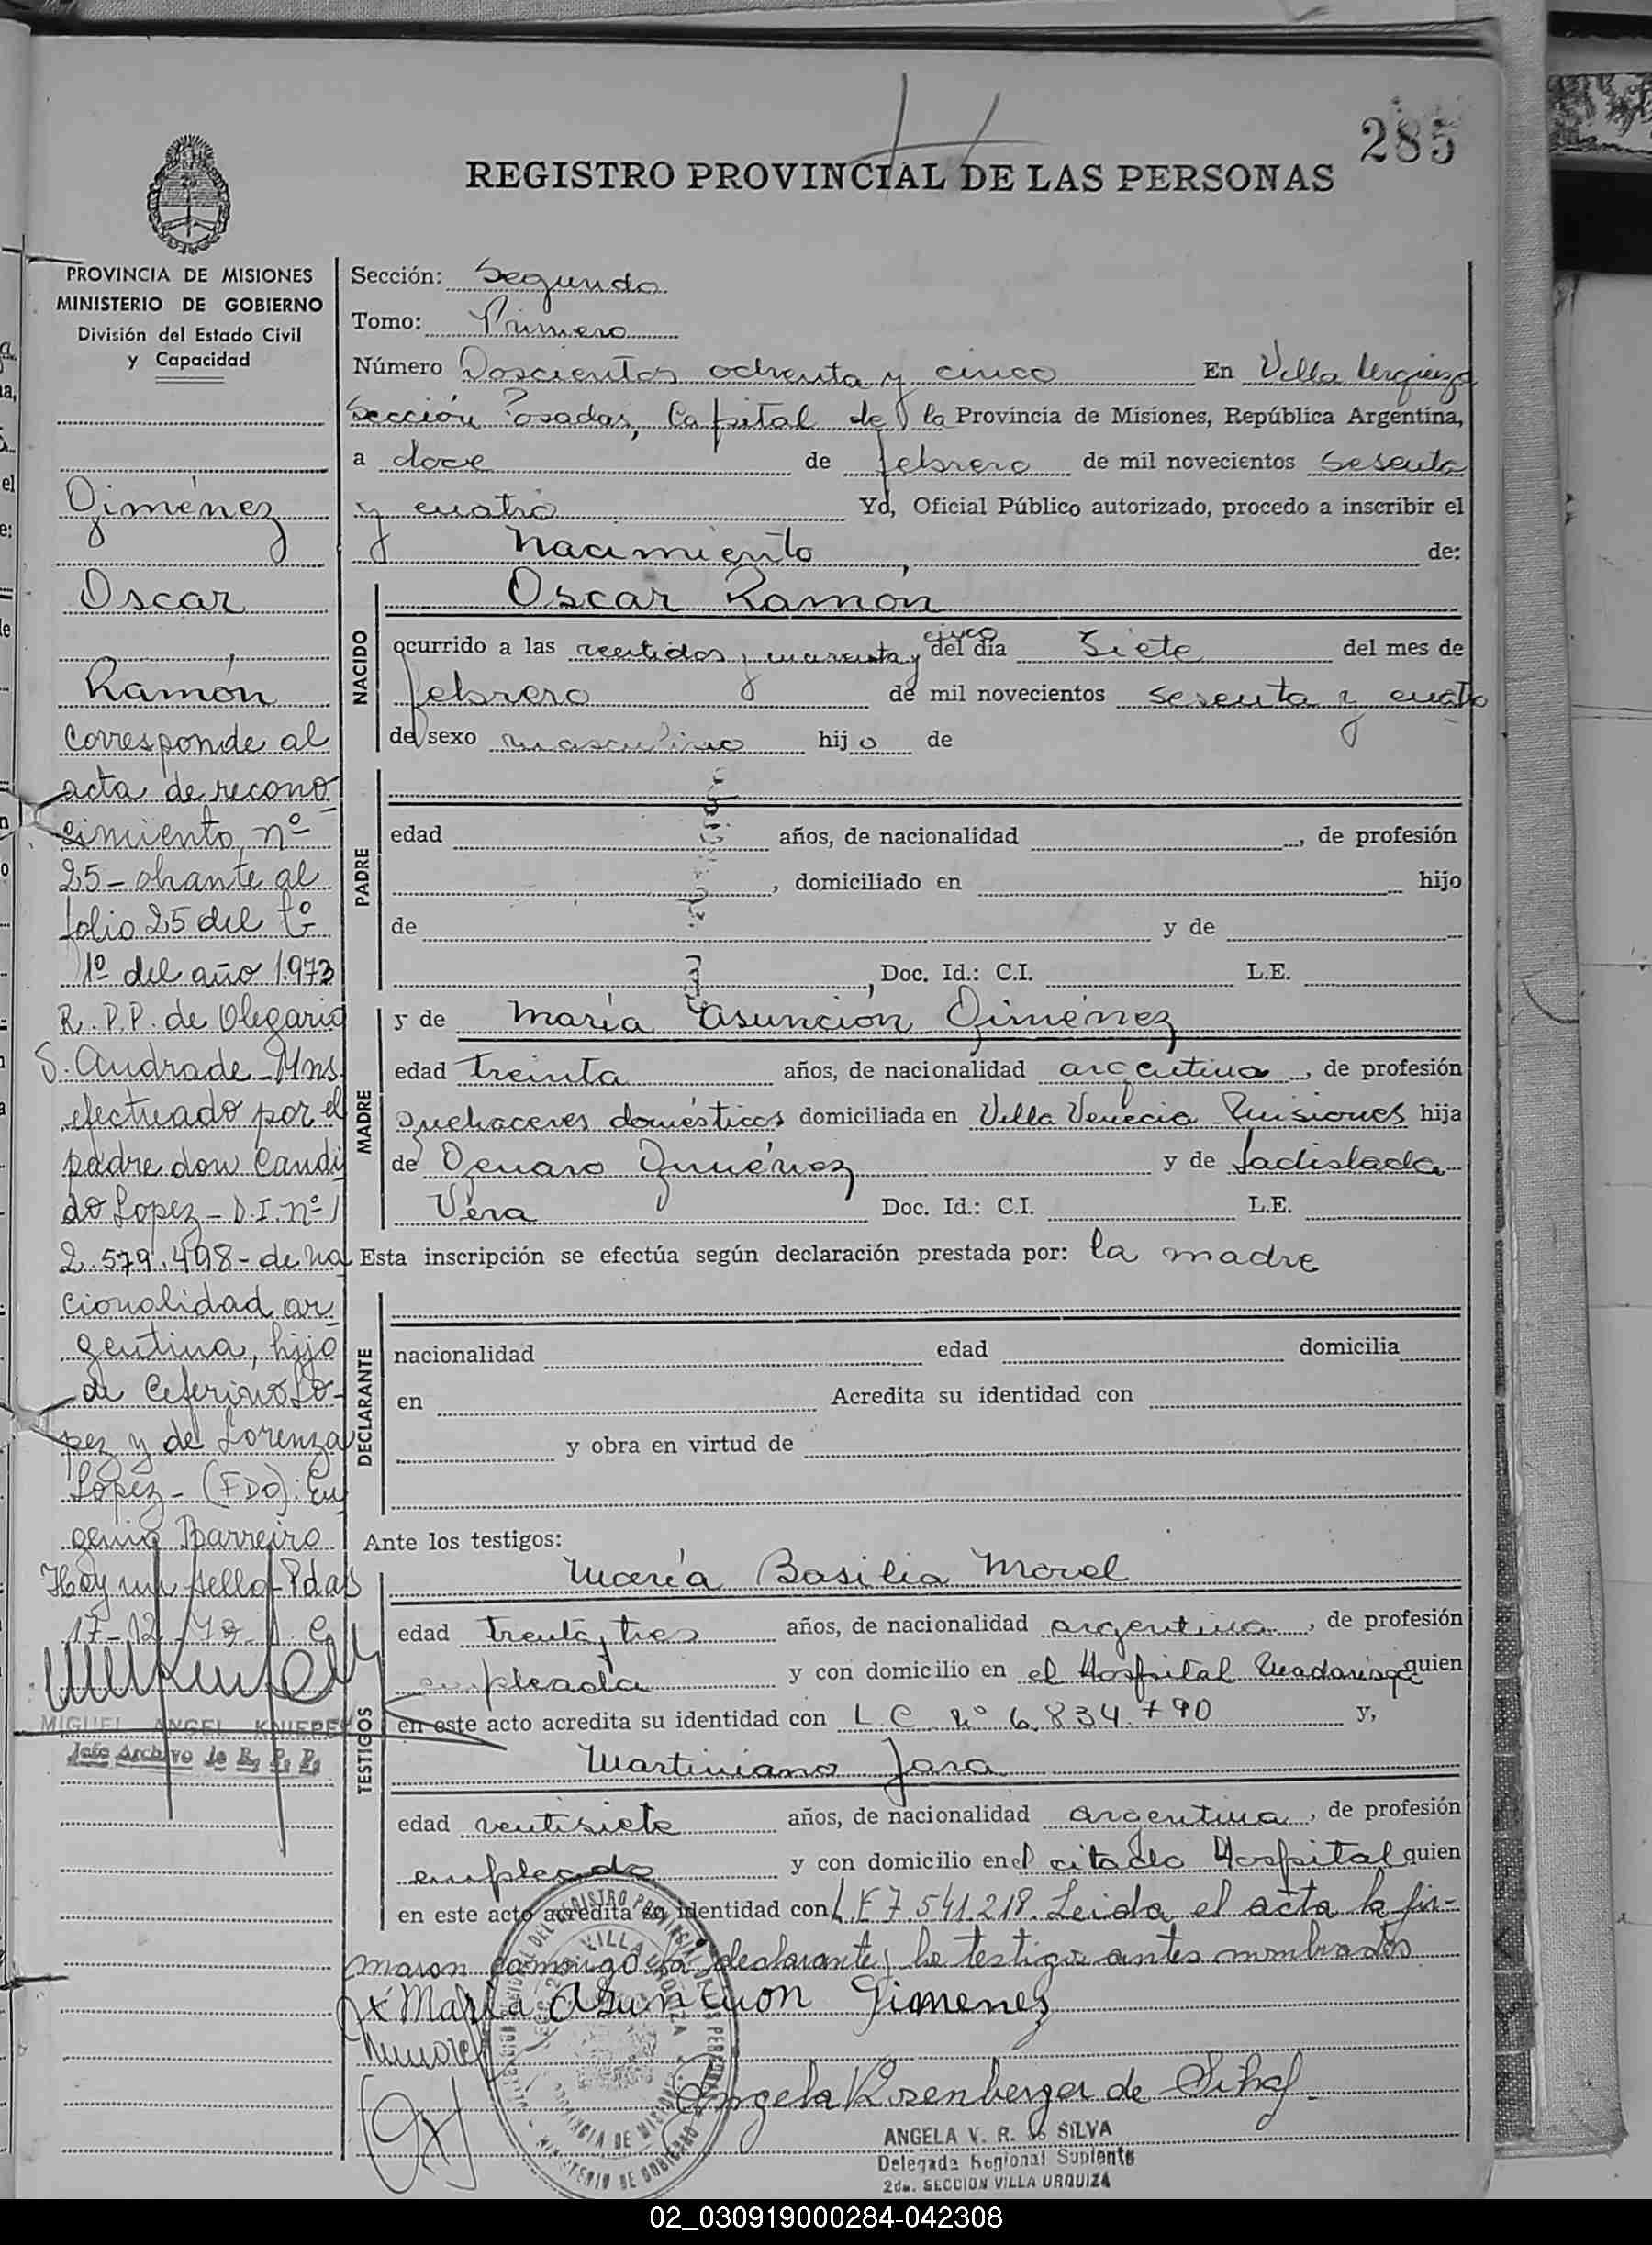 285
REGISTRO PROVINCIAL DE LAS PERSONAS
PROVINCIA DE MISIONES
MINISTERIO DE GOBIERNO
División del Estado Civil
y Capacidad
Gimenez
Oscar
Ramón
Corresponde al
acta de recono
cimiento nº
25 - obrante al
folio 25 del tº
1º del año 1.973
R.P.P. de Olegario
S. Andrade Mns.
efectuado por el
padre don Candi
do Lopez - D.I. nº
2.579.498 - de na
cionalidad ar
gentina, hijo
de Ceferino Ló-
pez y de Lorenza
Lopez - (FDO): Eu
genia Barreiro
Hay un sello - Pdas
17-12-
MIGUEL ANGEL KNIEPER
Jefe Archivo de R. P. P.
Sección: Segunda
Tomo: Primero
Número Doscientos ochenta y cinco En Villa Urquiza
Sección Posadas, Capital de la Provincia de Misiones, República Argentina,
a doce de febrero de mil novecientos sesenta
y cuatro Yo, Oficial Público autorizado, procedo a inscribir el
Nacimiento de:
NACIDO
Oscar Ramón
cinco
ocurrido a las ventidos y cuarenta y del día Siete del mes de
febrero de mil novecientos sesenta y cuatro
de sexo masculino hijo de
PADRE
edad años, de nacionalidad , de profesión
, domiciliado en hijo
de y de
, Doc. Id.: C.I. L.E.
MADRE
y de María Asunción Giménez
edad treinta años, de nacionalidad argentina, de profesión
quehaceres domésticos domiciliada en Villa Venecia Misiones hija
de Genaro Gimenez y de Ladislada
Vera Doc. Id.: C.I. L.E.
Esta inscripción se efectúa según declaración prestada por: la madre
DECLARANTE
nacionalidad edad domicilia
en Acredita su identidad con
y obra en virtud de
Ante los testigos:
TESTIGOS
María Basilia Morel
edad treinta y tres años, de nacionalidad argentina, de profesión
empleada y con domicilio en el Hospital Madariaga quien
en este acto acredita su identidad con L.C. Nº 6.834.790 y,
Martiniano Jara
edad ventisiete años, de nacionalidad argentina, de profesión
empleado y con domicilio en el citado Hospital quien
en este acto acredita su identidad con L.E 7.541.218. Leida el acta la fir-
maron conmigo la declarante y los testigos antes nombrados
x Maria Asuncion Gimenez
MMorel
Angela Rosenberger de Silva
ANGELA V. R. de SILVA
Delegada Regional Suplente
2da. SECCION VILLA URQUIZA
02_030919000284-042308